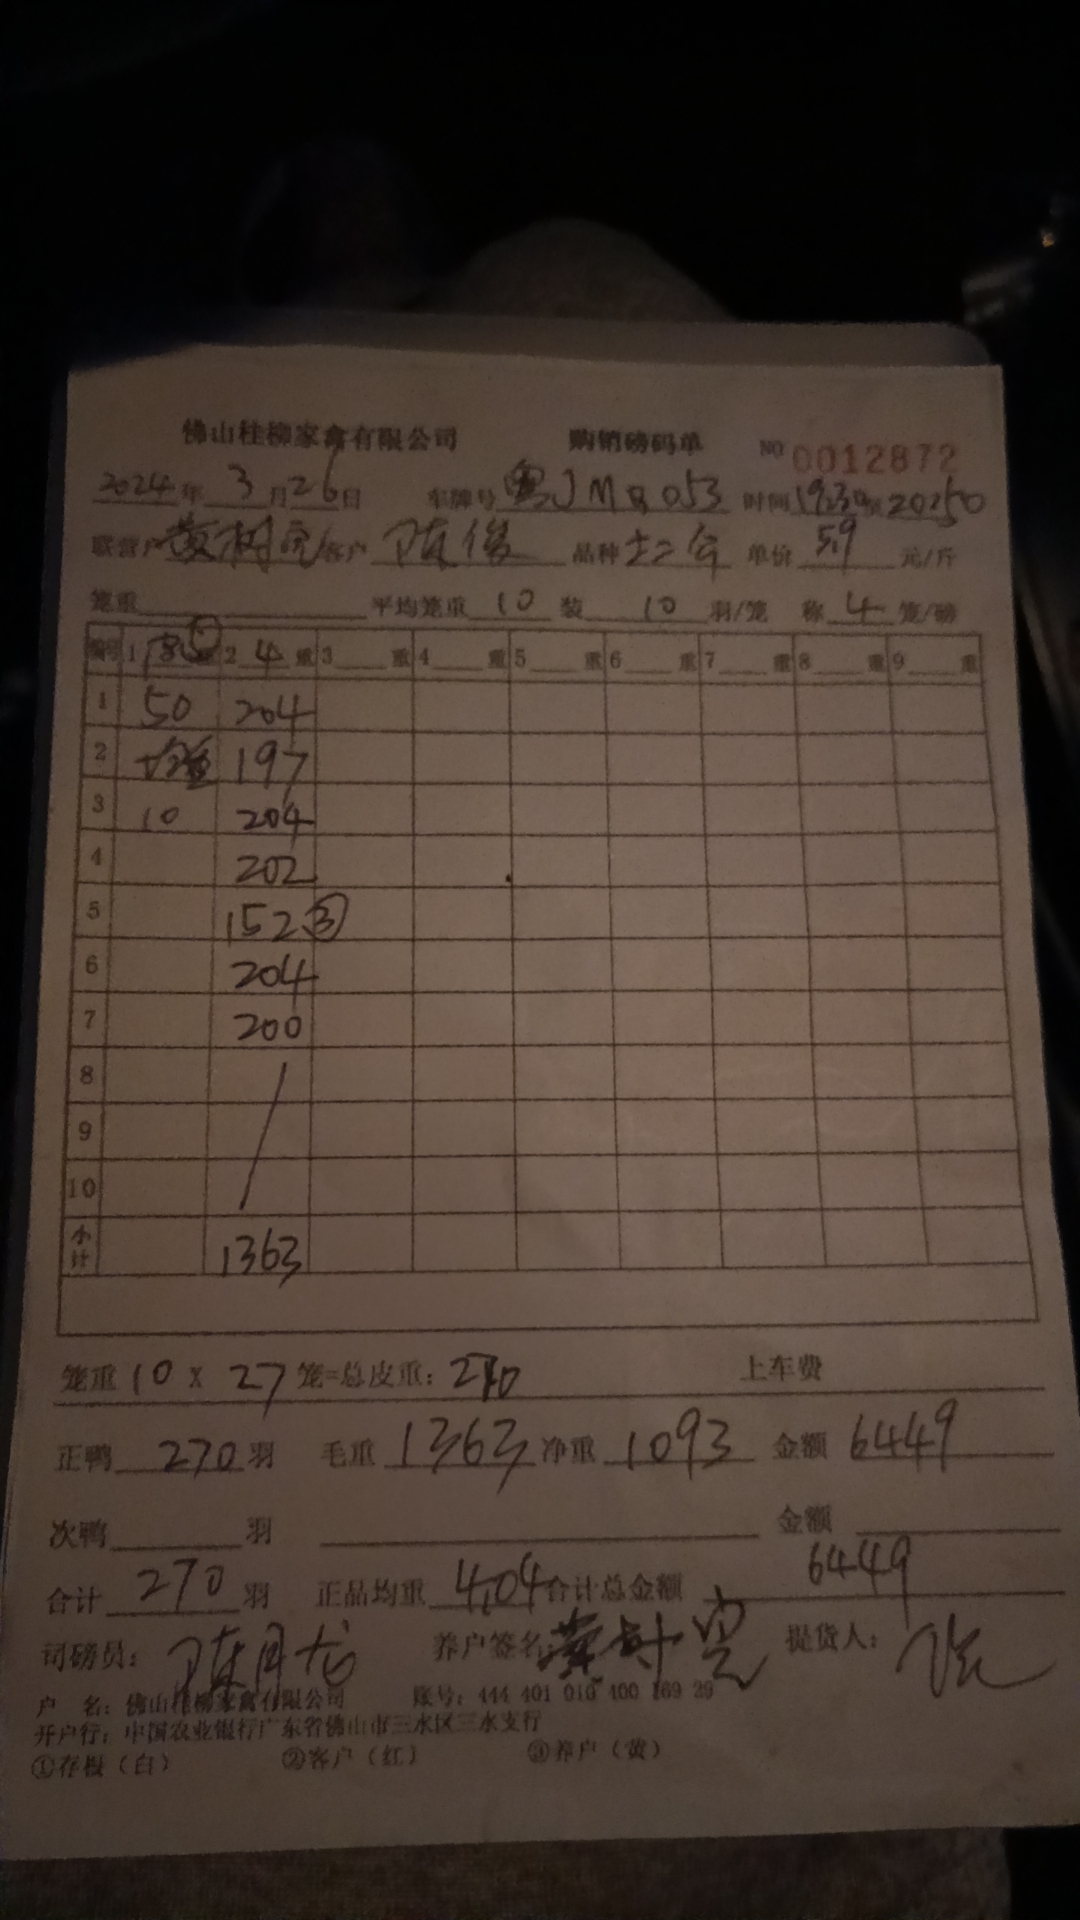 佛山桂柳家禽有限公司 购销磅码单 NO 0012872
2024年 3月26日 车牌号 粤JM8053 时间 19:30至20:50
联营户 黄树亮 客户 陈俊 品种 土二公 单价 5.9 元/斤
笼重 平均笼重 10 装 10 羽/笼 称 4 笼/磅
编号 1 ⑤重 2 4 重 3 重 4 重 5 重 6 重 7 重 8 重 9 重
1 50 204
2 均重 197
3 10 204
4 202
5 152③
6 204
7 200
8
9
10
小计 1363
笼重 10 X 27 笼=总皮重: 270 上车费
正鸭 270 羽 毛重 1363 净重 1093 金额 6449
次鸭 羽 金额
合计 270 羽 正品均重 4.04 合计总金额 6449
司磅员: 陈月龙 养户签名: 黄树亮 提货人:
户 名: 佛山桂柳家禽有限公司 账号: 444 401 010 400 169 29
开户行: 中国农业银行广东省佛山市三水区三水支行
①存根（白） ②客户（红） ③养户（黄）